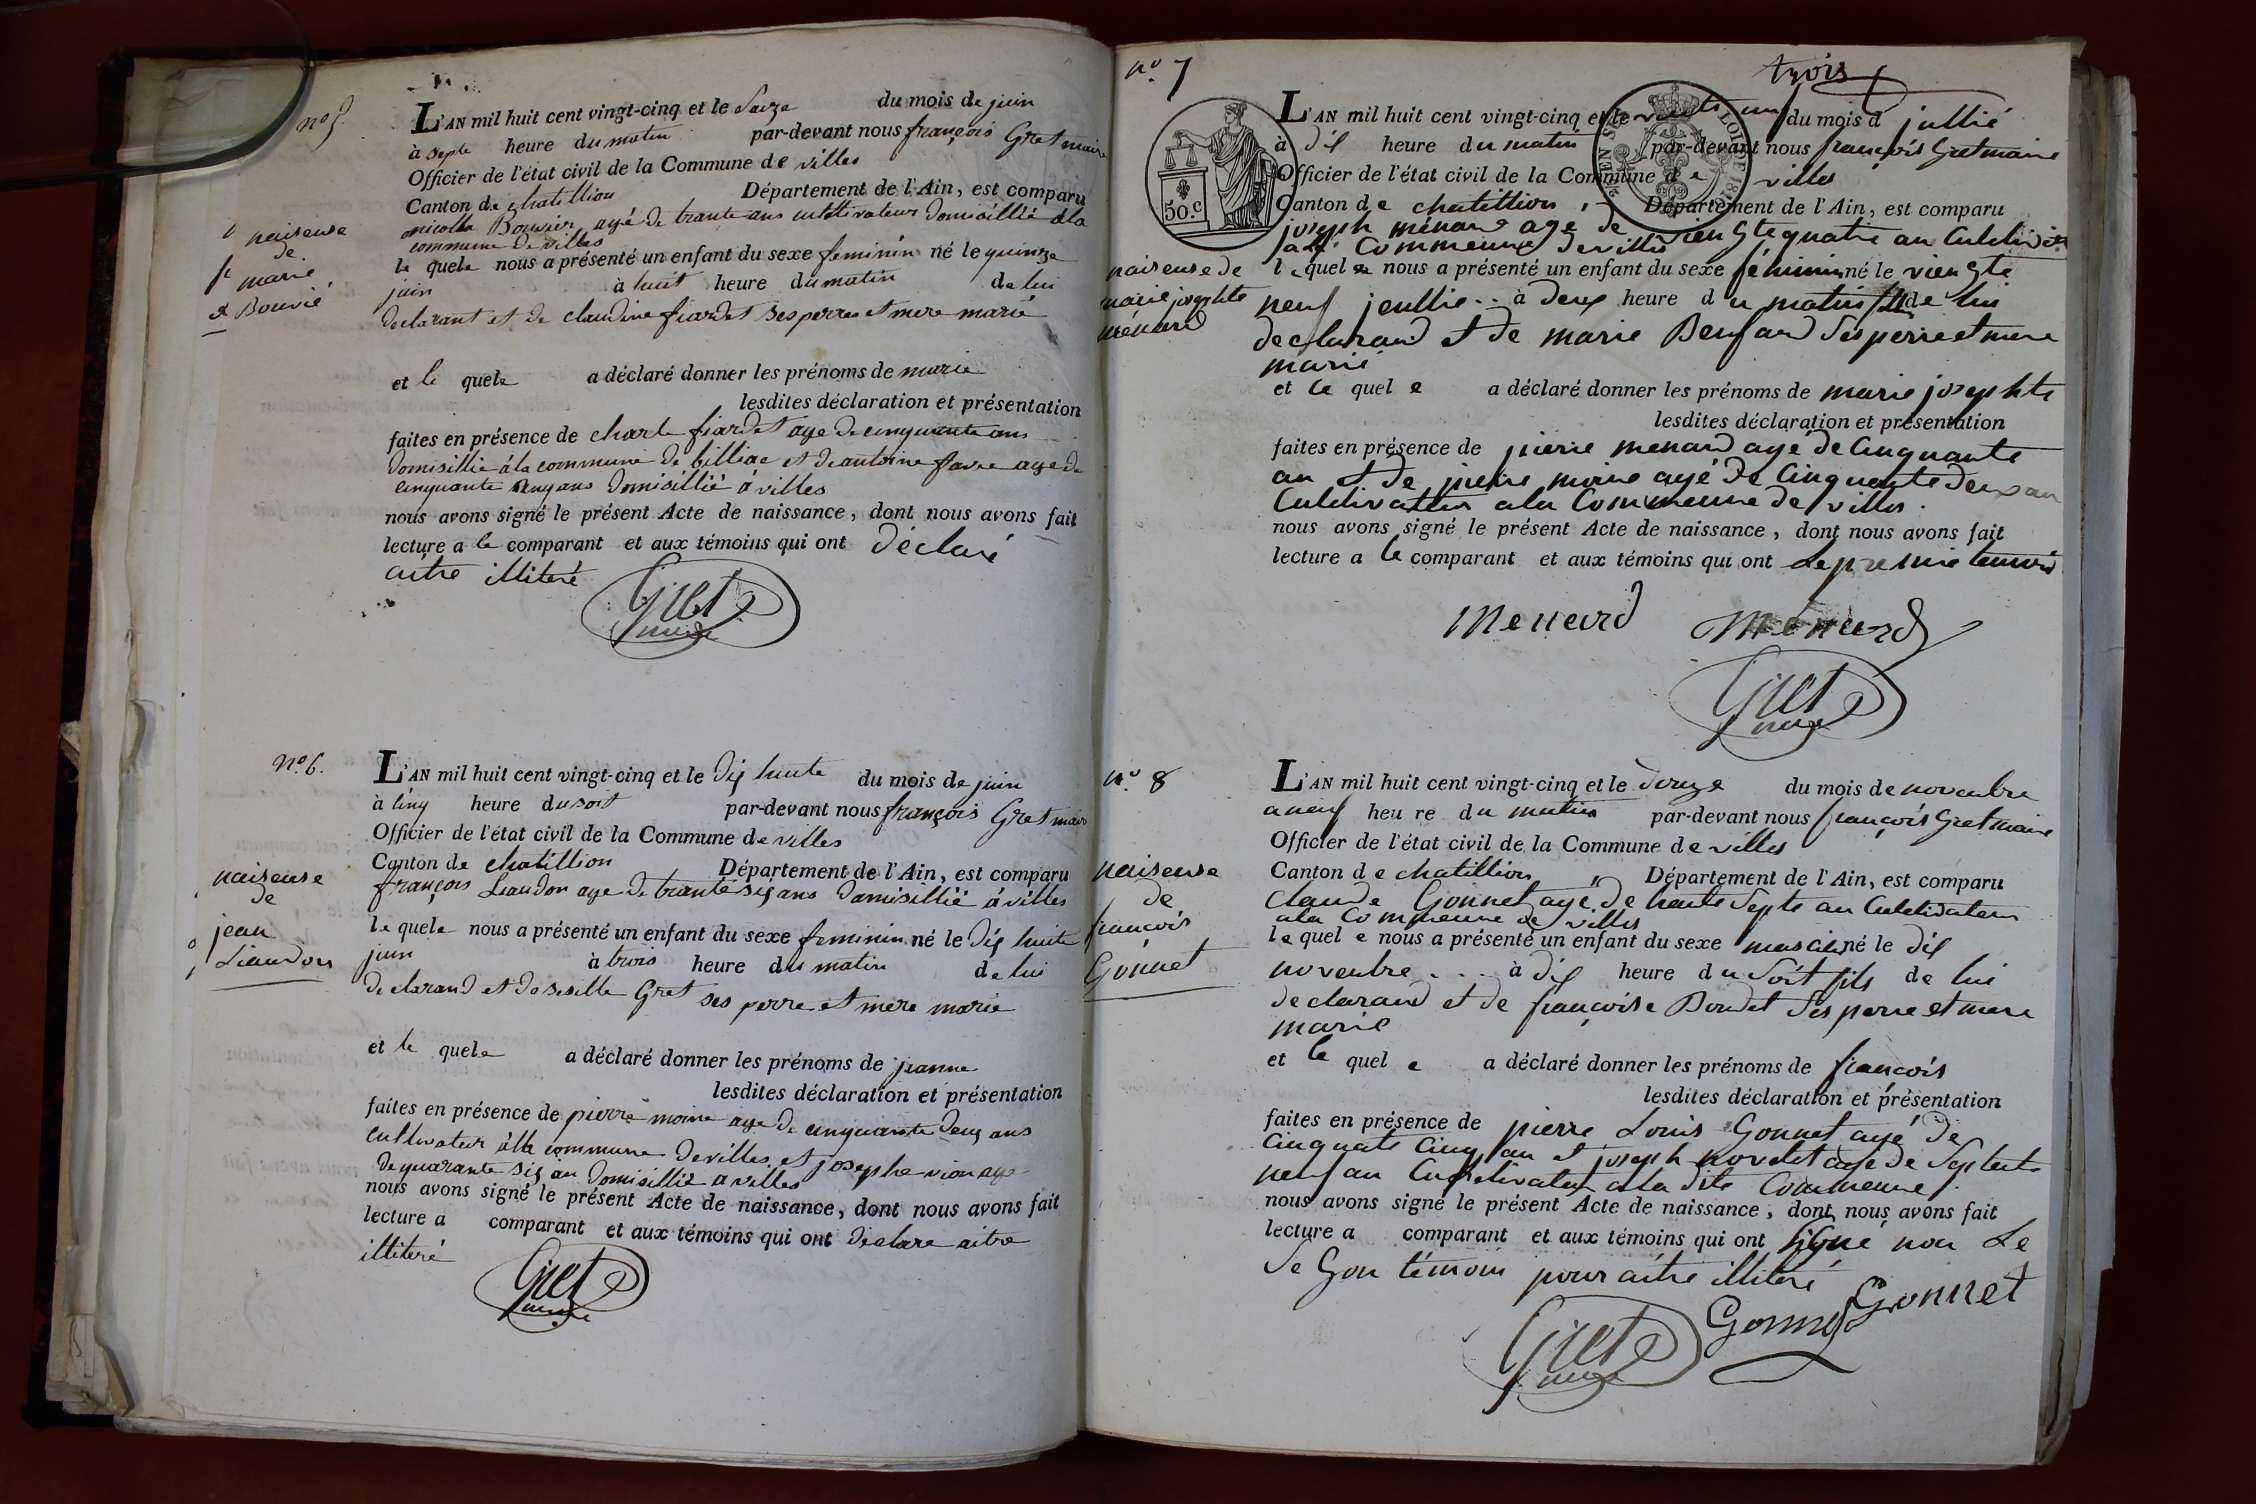 nº 5.
L'AN mil huit cent vingt-cinq et le Saize du mois de juin
à septe heure du matin par-devant nous françois Gret maire
Officier de l'état civil de la Commune de villes
Canton de chatillion Département de l'Ain, est comparu
nicolla Bouvier agé de trante ans cultivateur domisillié à la
commune de villes
le quele nous a présenté un enfant du sexe feminin né le quinze
juin à huit heure du matin de lui
declarant et de claudine fiardet ses perre et mere marié
naiseuse
de
marie
Bouvié
et le quele a déclaré donner les prénoms de marie
lesdites déclaration et présentation
faites en présence de charle fiardet age de cinquante ans
domisillié à la commune de billiac et de antoine favre age de
cinquante cinq ans domisillié à villes
nous avons signé le présent Acte de naissance, dont nous avons fait
lecture a le comparant et aux témoins qui ont déclaré
aitre illiteré
Gret
maire
nº 6.
L'AN mil huit cent vingt-cinq et le dis huite du mois de juin
à cinq heure du soit par-devant nous françois Gret maire
Officier de l'état civil de la Commune de villes
Canton de chatillion Département de l'Ain, est comparu
françois Liaudon age de trante sis ans domisillié à villes
le quele nous a présenté un enfant du sexe feminin né le dis huite
juin à trois heure du matin de lui
declarand et de sesille Gret ses perre et mere marié
naiseuse
de
jean
Liaudon
et le quele a déclaré donner les prénoms de jeanne
lesdites déclaration et présentation
faites en présence de pierre moine age de cinquante deus ans
cultivateur à la commune de villes et josephe vion age
de quarante sis an domisillié a villes
nous avons signé le présent Acte de naissance, dont nous avons fait
lecture a comparant et aux témoins qui ont declare aitre
illiteré
Gret
maire
trois
nº 7
50.c
LOI DE 181
L'AN mil huit cent vingt-cinq et le du mois d jullié
à dis heure du matin par-devant nous françois Gret maire
Officier de l'état civil de la Commune de villes
Canton de chatillion, Département de l'Ain, est comparu
joseph ménard age de viengte quatre an Culdivater
a la Commeune de villes
le quel e nous a présenté un enfant du sexe féminin né le viengte
neuf jeullie .. à deux heure du matin fille de lui
declarand et de marie Benfand ses perre et mere
marié
naiseuse de
marie josephte
ménard
et le quel e a déclaré donner les prénoms de marie josephte
lesdites déclaration et présentation
faites en présence de pierre menard agé de Cinquante
an et de pierre moine agé de Cinquante deux an
Culdivateur a la Commeune de villes.
nous avons signé le présent Acte de naissance, dont nous avons fait
lecture a le comparant et aux témoins qui ont le premié temoin
Menard Ménard
Gret
maire
nº 8
L'AN mil huit cent vingt-cinq et le douze du mois de novenbre
a neuf heure du matin par-devant nous françois Gret maire
Officier de l'état civil de la Commune de villes
Canton de chatillion, Département de l'Ain, est comparu
Claude Gonnet agé de trante septe an Culdivateur
a la Commeune de villes
le quel e nous a présenté un enfant du sexe masculin né le dis
novenbre ... à dis heure du soit fils de lui
declarand et de françoise Boudet ses perre et mere
marié
naiseuse
de
françois
Gonnet
et le quel e a déclaré donner les prénoms de françois
lesdites déclaration et présentation
faites en présence de pierre Louis Gonnet agé de
Cinquate Cinq an et joseph age de Septente
neuf an Culdivateur a la dite Commeune.
nous avons signé le présent Acte de naissance, dont nous avons fait
lecture a comparant et aux témoins qui ont signé non Le
segon témoin pour aitre illiteré
Gonnet Gonnet
Gret
maire